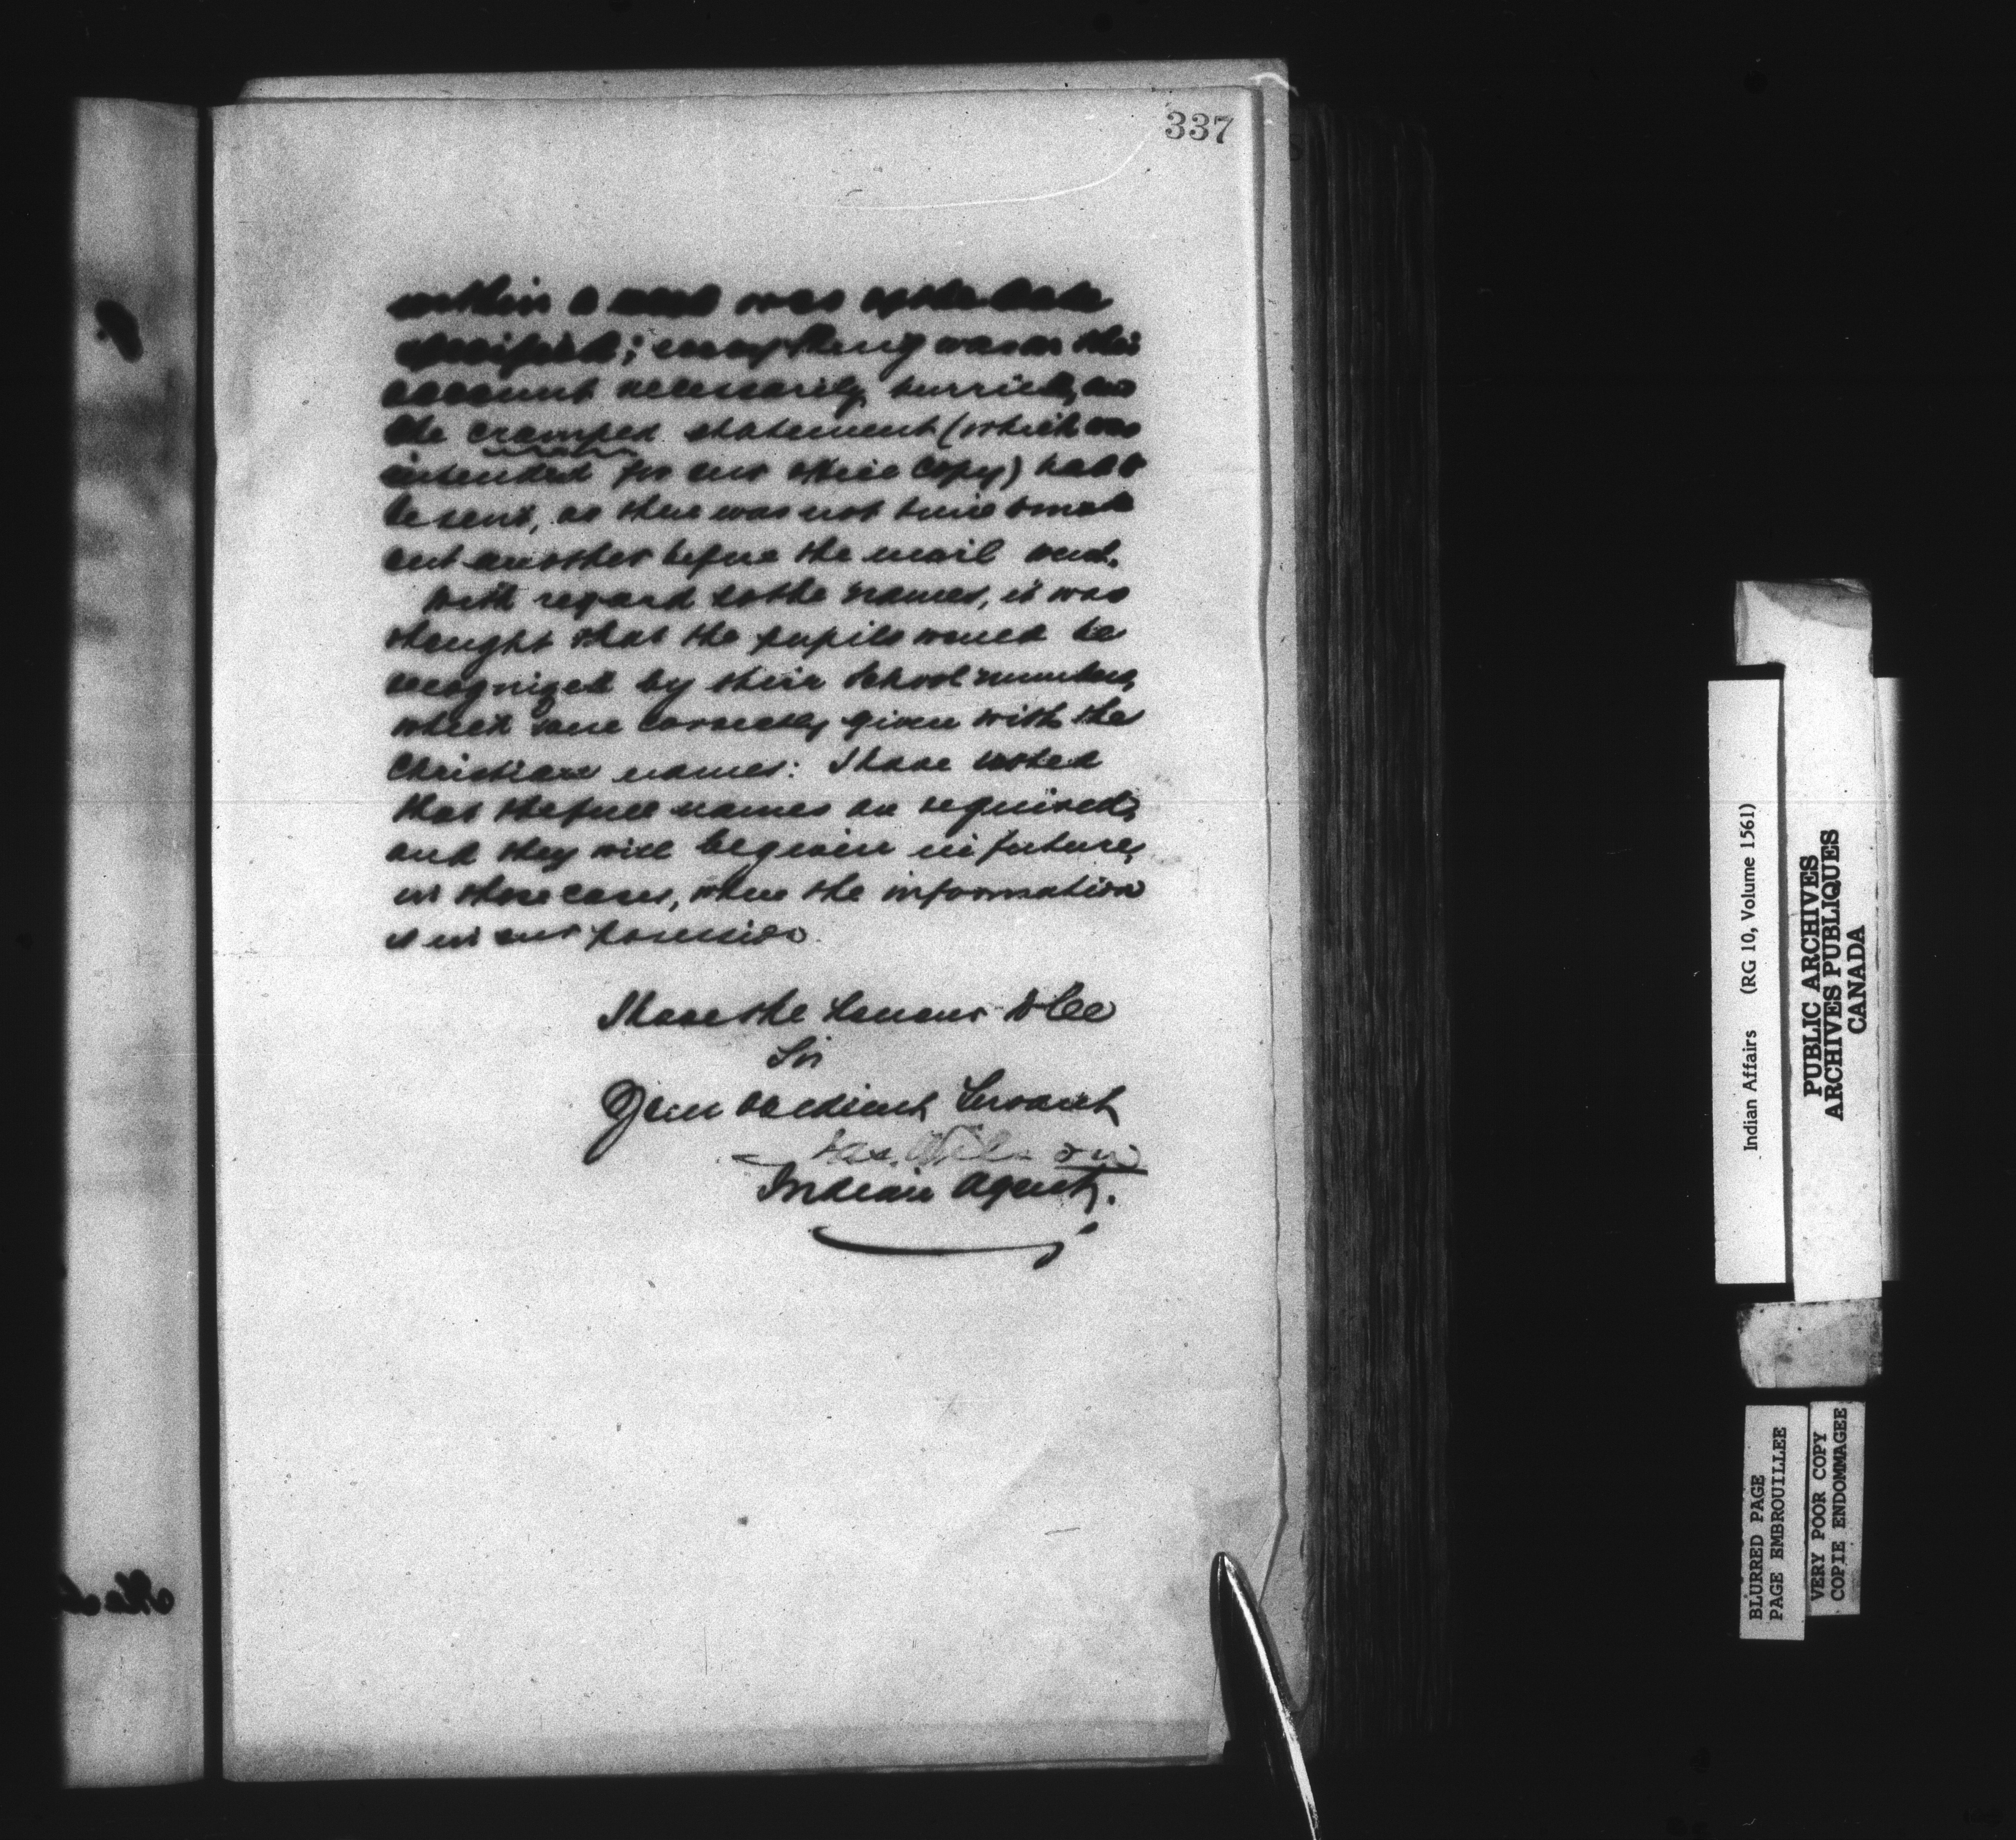 337
within a week was of the date
specified; everything was on this
account necessarily hurried, and
the cramped statement (which was
intended for our office copy) had to
be sent, as there was not time to make
out another before the mail went.
With regard to the names, it was
thought that the pupils would be
recognized by their School numbers,
which were correctly given with the
Christian names: I have noted
that the full names are required,
and they will be given in future,
in those cases, where the information
is in our possession.
I have the honour to be
Sir
Your obedient Servant
Jas. Wilson
Indian Agent.
Indian Affairs (RG 10, Volume 1561)
PUBLIC ARCHIVES
ARCHIVES PUBLIQUES
CANADA
BLURRED PAGE
PAGE EMBROUILLEE
VERY POOR COPY
COPIE ENDOMMAGEE